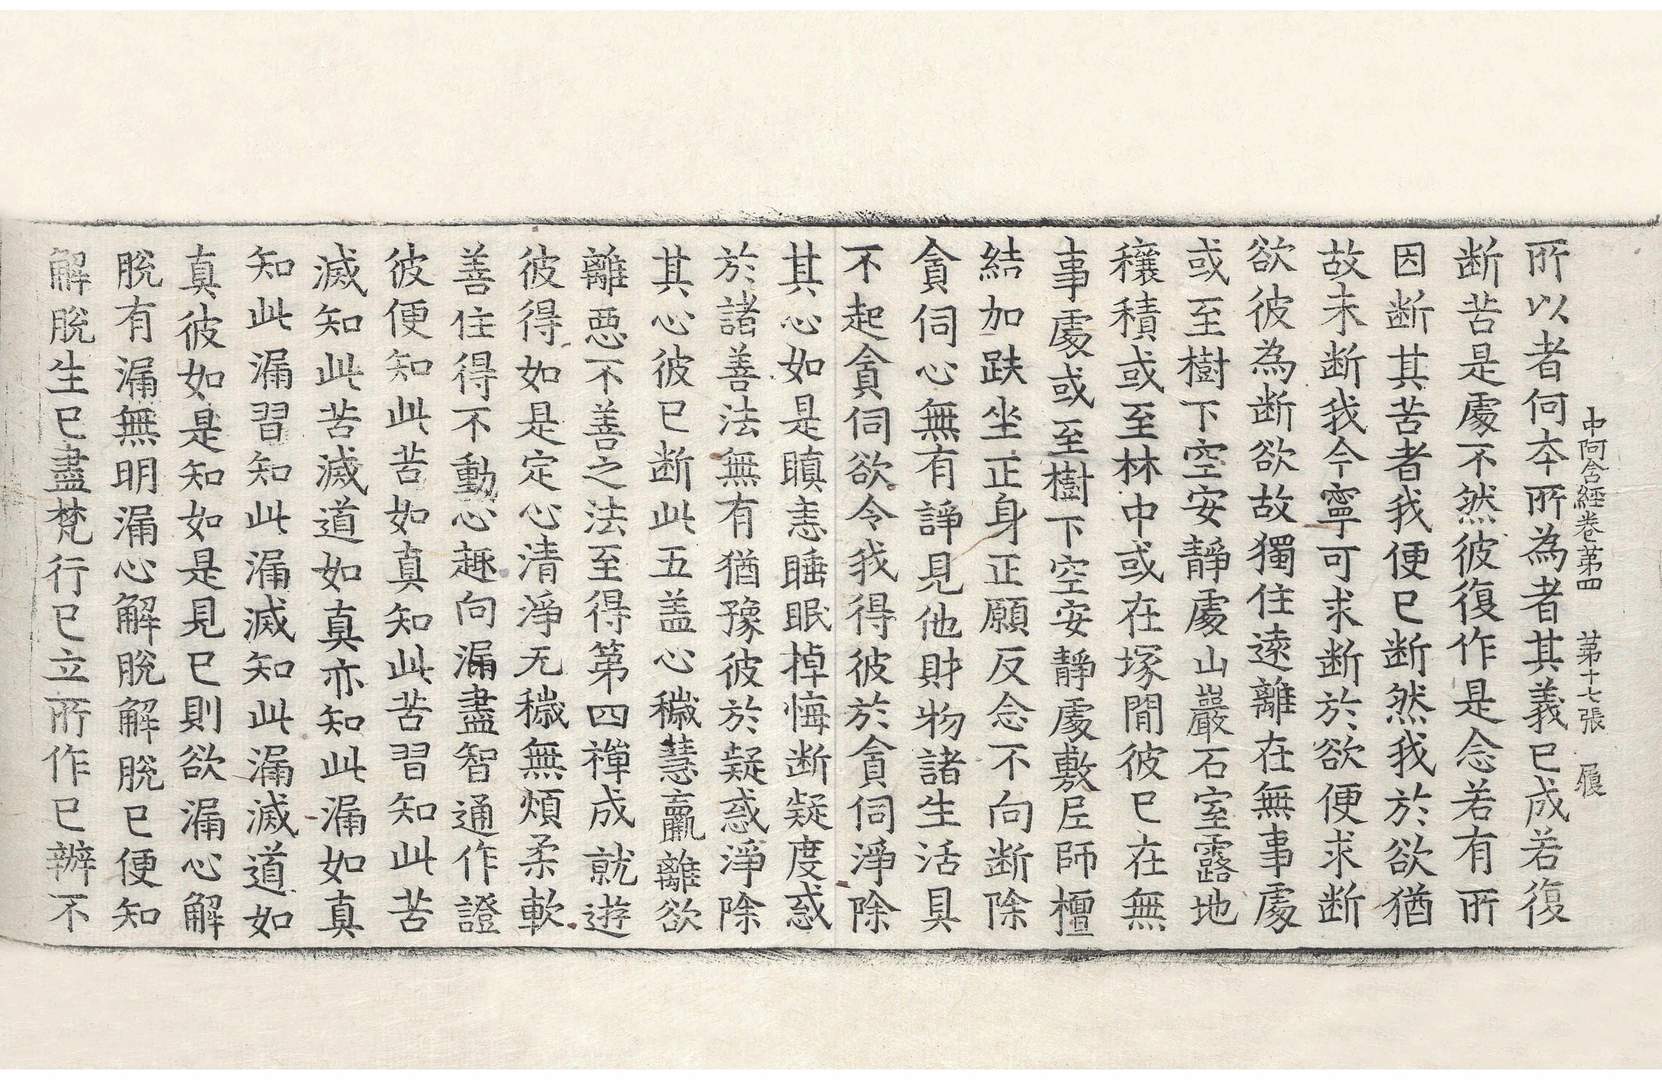 中阿含經卷第四 第十七張 履
所以者何本所為者其義已成若復
断苦是處不然彼復作是念若有所
因断其苦者我便已断然我於欲猶
故未断我今寧可求断於欲便求断
欲彼為断欲故獨住遠離在無事處
或至樹下空安靜處山巖石室露地
穰積或至林中或在塚閒彼已在無
事處或至樹下空安靜處敷尼師檀
結加趺坐正身正願反念不向断除
貪伺心無有諍見他財物諸生活具
不起貪伺欲令我得彼於貪伺淨除
其心如是瞋恚睡眠掉悔断疑度惑
於諸善法無有猶豫彼於疑惑淨除
其心彼已断此五盖心穢慧羸離欲
離惡不善之法至得第四禪成就遊
彼得如是定心清淨无穢無煩柔軟
善住得不動心趣向漏盡智通作證
彼便知此苦如真知此苦習知此苦
滅知此苦滅道如真亦知此漏如真
知此漏習知此漏滅知此漏滅道如
真彼如是知如是見已則欲漏心解
脫有漏無明漏心解脫解脫已便知
解脫生已盡梵行已立所作已辦不